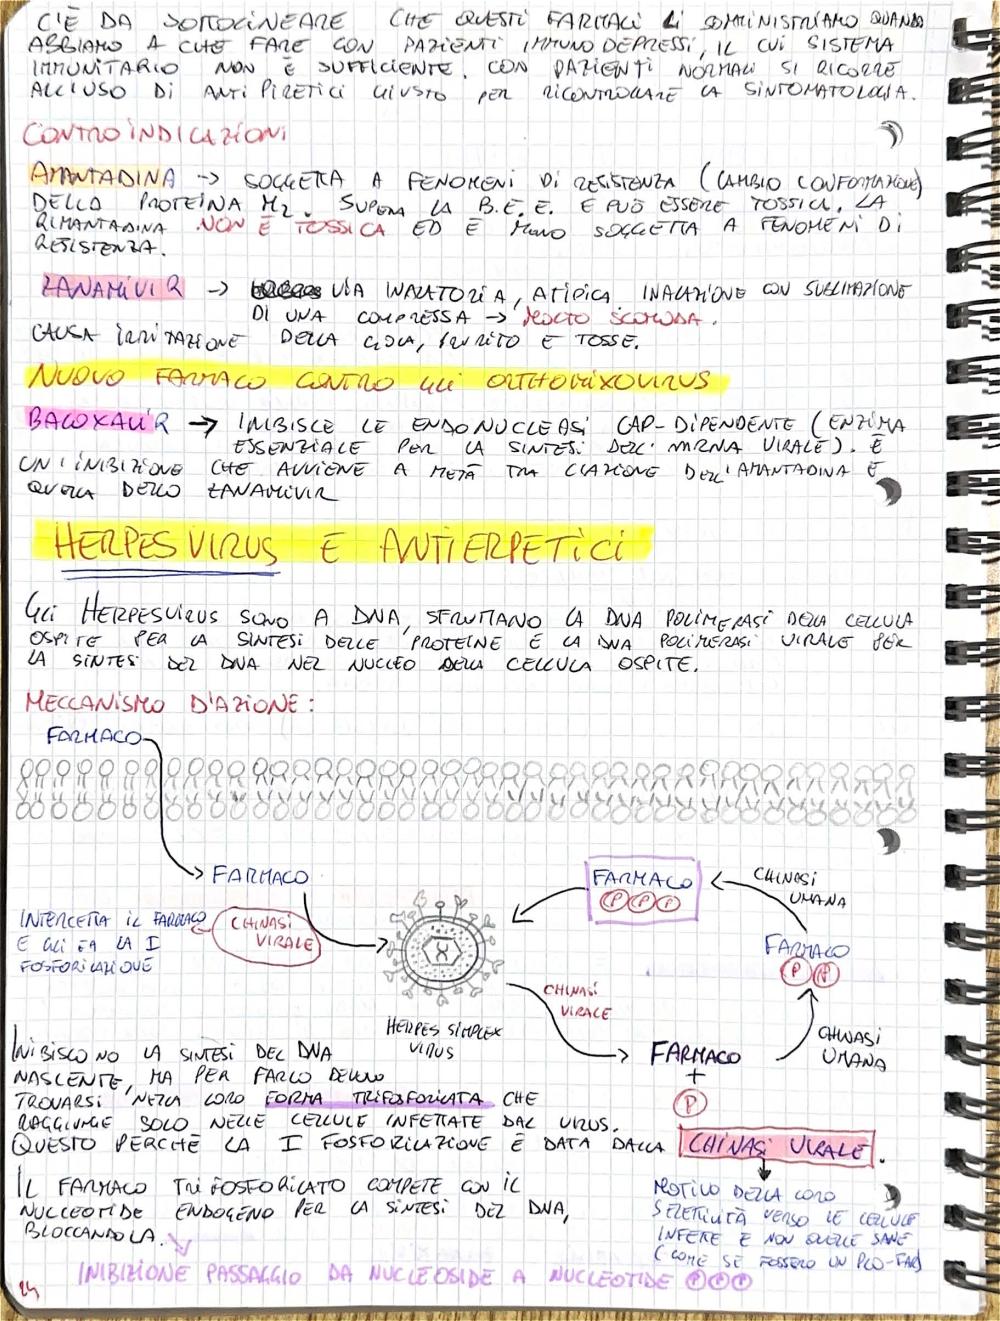 C'È DA SOTTOLINEARE CHE QUESTI FARMACI LI SOMMINISTRIAMO QUANDO
ABBIAMO A CHE FARE CON PAZIENTI IMMUNODEPRESSI, IL CUI SISTEMA
IMMUNITARIO NON È SUFFICIENTE. CON PAZIENTI NORMALI SI RICORRE
ALL'USO DI ANTIPIRETICI GIUSTO PER RICONTROLLARE LA SINTOMATOLOGIA.
CONTROINDICAZIONI
AMANTADINA -> SOGGETTA A FENOMENI DI RESISTENZA (CAMBIO CONFORMAZIONE)
DELLA PROTEINA M2. SUPERA LA B.E.E. E PUÒ ESSERE TOSSICA. LA
RIMANTADINA NON È TOSSICA ED È MENO SOGGETTA A FENOMENI DI
RESISTENZA.
ZANAMIVIR -> VIA INALATORIA, ATIPICA. INALAZIONE CON SUBLIMAZIONE
DI UNA COMPRESSA -> MOLTO SCOMODA.
CAUSA IRRITAZIONE DELLA GOLA, PRURITO E TOSSE.
NUOVO FARMACO CONTRO GLI ORTHOMIXOVIRUS
BALOXAVIR -> INIBISCE LE ENDONUCLEASI CAP-DIPENDENTE (ENZIMA
ESSENZIALE PER LA SINTESI DELL'MRNA VIRALE). È
UN'INIBIZIONE CHE AVVIENE A METÀ TRA L'AZIONE DELL'AMANTADINA E
QUELLA DELLO ZANAMIVIR
HERPESVIRUS E ANTIERPETICI
GLI HERPESVIRUS SONO A DNA, SFRUTTANO LA DNA POLIMERASI DELLA CELLULA
OSPITE PER LA SINTESI DELLE PROTEINE E LA DNA POLIMERASI VIRALE PER
LA SINTESI DEL DNA NEL NUCLEO DELLA CELLULA OSPITE.
MECCANISMO D'AZIONE:
FARMACO
FARMACO
INTERCETTA IL FARMACO
E GLI FA LA I
FOSFORILAZIONE
CHINASI
VIRALE
HERPES SIMPLEX
VIRUS
CHINASI
VIRALE
FARMACO
+
P
CHINASI
UMANA
FARMACO
P P
CHINASI
UMANA
FARMACO
P P P
INIBISCONO LA SINTESI DEL DNA
NASCENTE, MA PER FARLO DEVONO
TROVARSI NELLA LORO FORMA TRIFOSFORILATA CHE
RAGGIUNGE SOLO NELLE CELLULE INFETTATE DAL VIRUS.
QUESTO PERCHÈ LA I FOSFORILAZIONE È DATA DALLA CHINASI VIRALE.
IL FARMACO TRIFOSFORILATO COMPETE CON IL
NUCLEOTIDE ENDOGENO PER LA SINTESI DEL DNA,
BLOCCANDOLA.
MOTIVO DELLA LORO
SELETTIVITÀ VERSO LE CELLULE
INFETTE E NON QUELLE SANE
(COME SE FOSSERO UN PRO-FAR)
INIBIZIONE PASSAGGIO DA NUCLEOSIDE A NUCLEOTIDE P P P
24